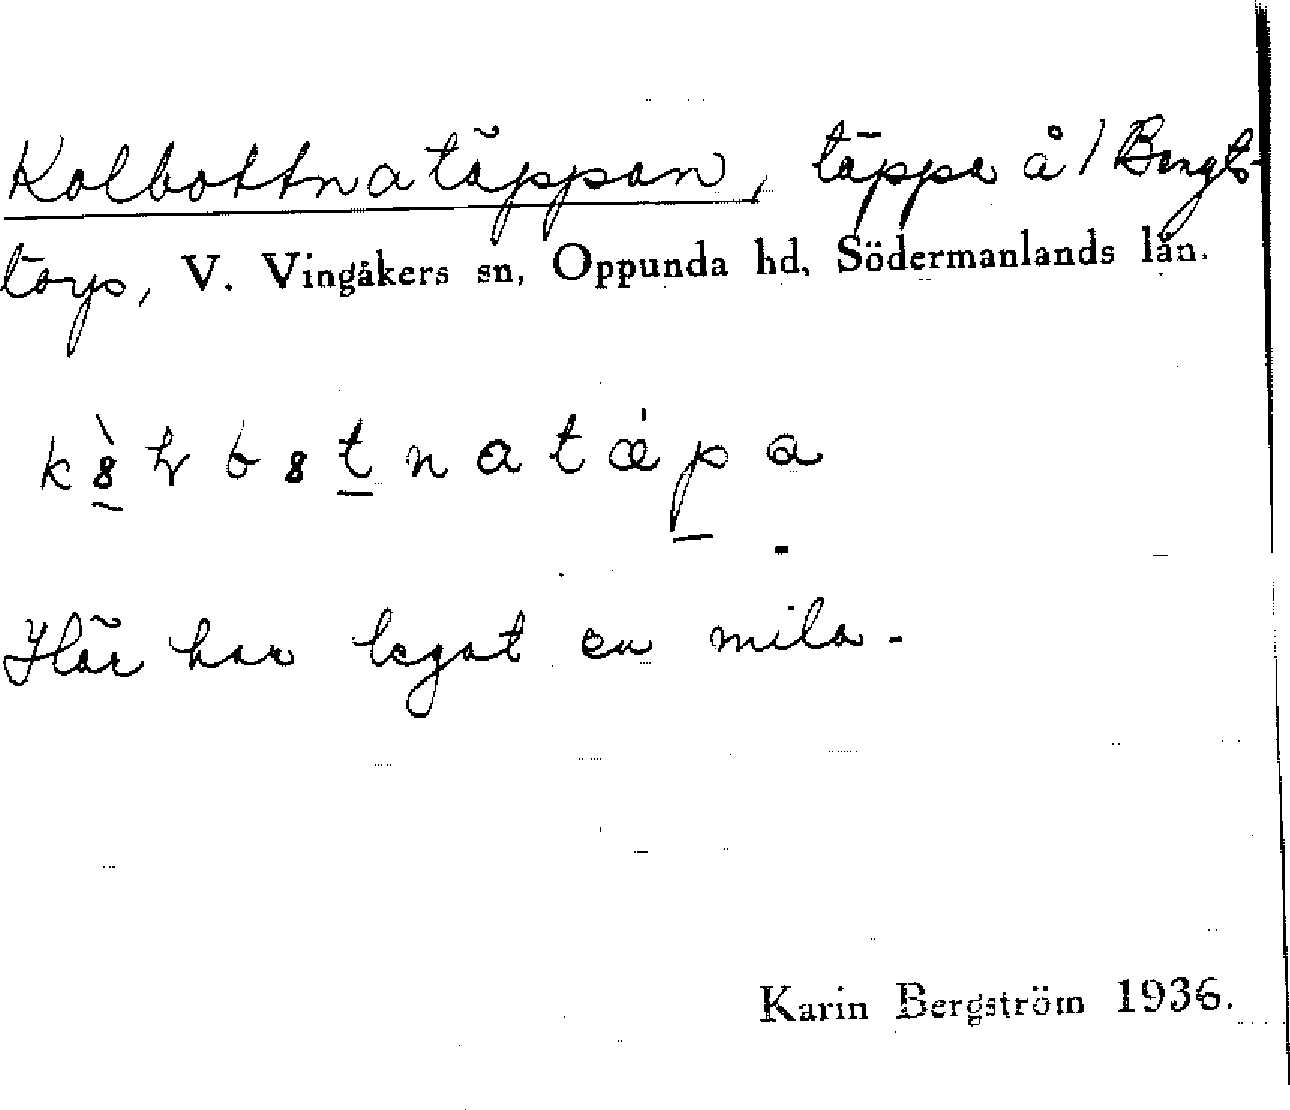 Kolbottnatäppan, täppa å/Bengts-
torp, V. Vingåkers sn, Oppunda hd, Södermanlands län.
Här har legat en mila.
Karin Bergström 1936.